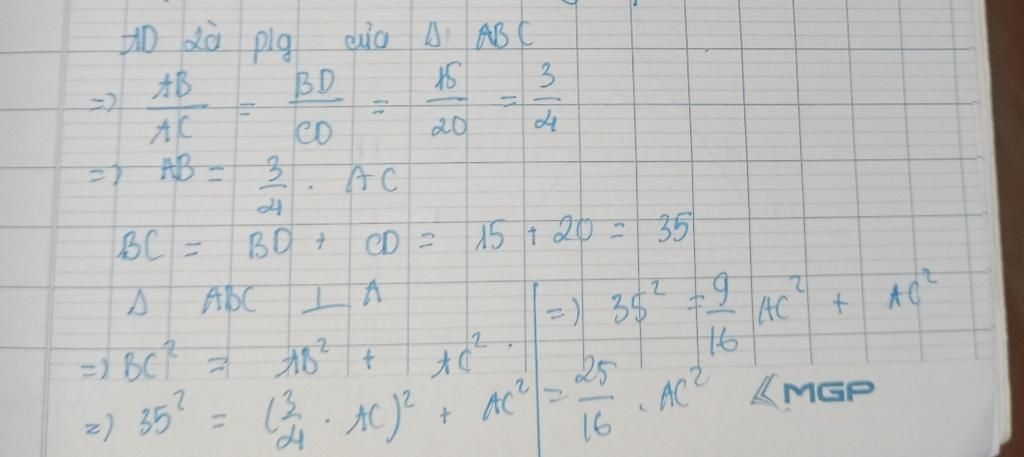 AD là p/g của Δ ABC
=> AB/AC = BD/CD = 15/20 = 3/4
=> AB = 3/4 . AC
BC = BD + CD = 15 + 20 = 35
Δ ABC ⊥ A
=> BC² = AB² + AC².
=> 35² = (3/4 . AC)² + AC²
=> 35² = 9/16 AC² + AC²
= 25/16 . AC²
MGP